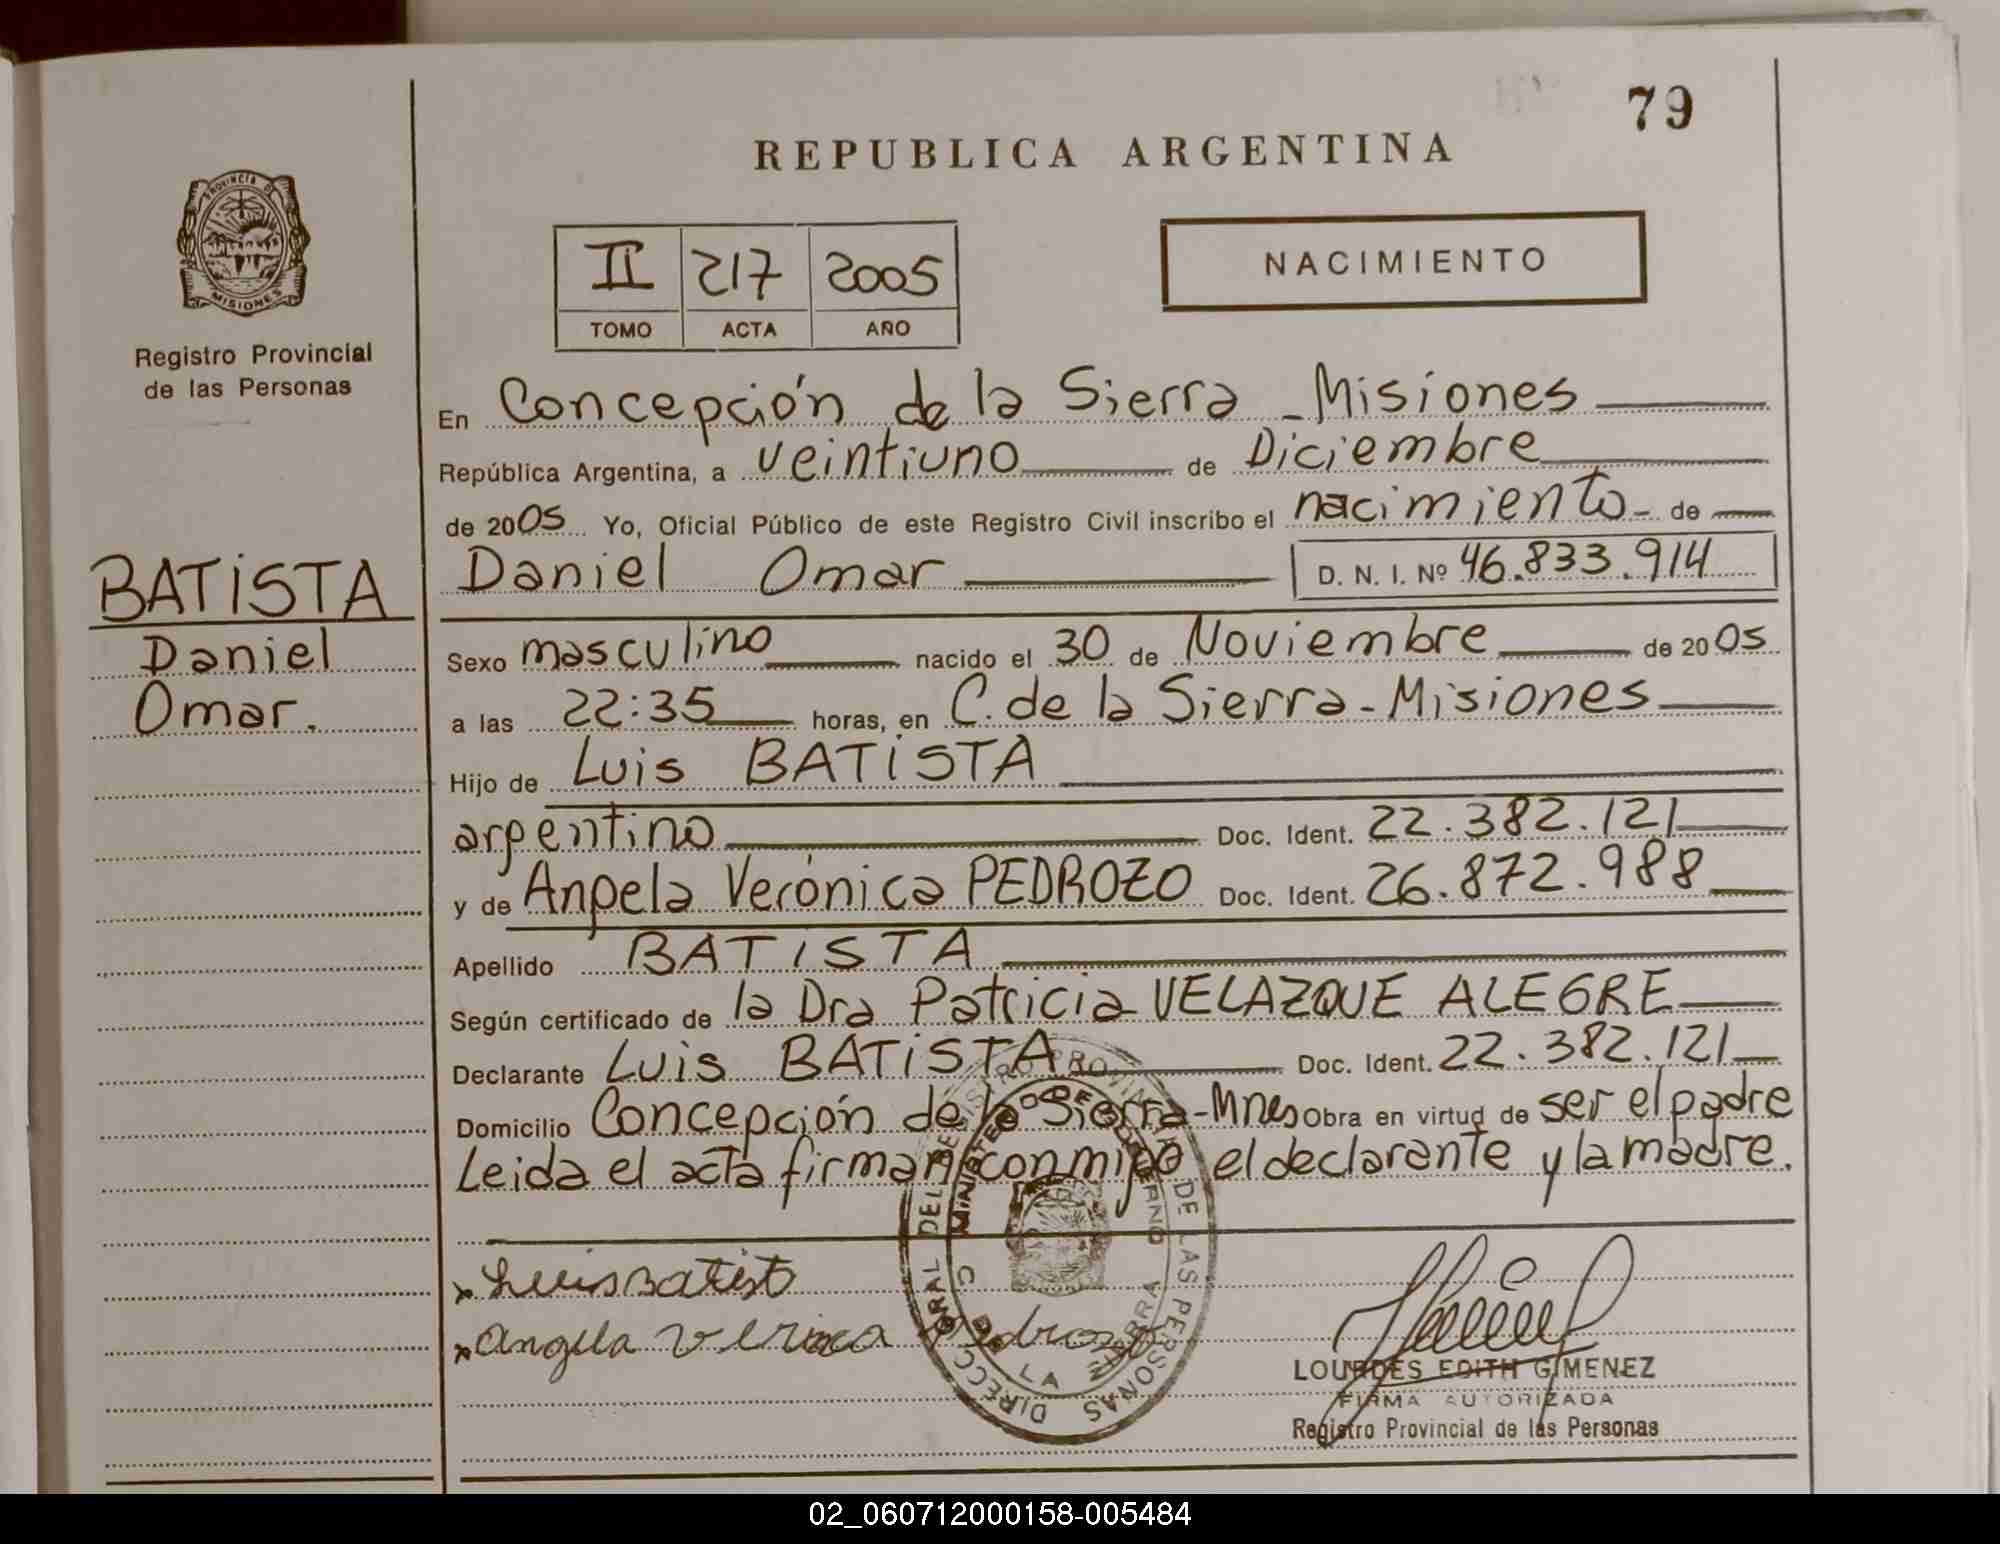 79
REPUBLICA ARGENTINA
PROVINCIA DE
MISIONES
Registro Provincial
de las Personas
II 217 2005
TOMO ACTA AÑO
NACIMIENTO
En Concepción de la Sierra - Misiones
República Argentina, a veintiuno de Diciembre
de 2005 Yo, Oficial Público de este Registro Civil inscribo el nacimiento - de
Daniel Omar D. N. I. Nº 46.833.914
BATISTA
Daniel
Omar.
Sexo masculino nacido el 30 de Noviembre de 2005
a las 22:35 horas, en C. de la Sierra - Misiones
Hijo de Luis BATISTA
argentino Doc. Ident. 22.382.121
y de Angela Verónica PEDROZO Doc. Ident. 26.872.988
Apellido BATISTA
Según certificado de la Dra Patricia VELAZQUE ALEGRE
Declarante Luis BATISTA Doc. Ident. 22.382.121
Domicilio Concepción de la Sierra - Mnes Obra en virtud de ser el padre
Leida el acta firman conmigo el declarante y la madre.
x Luis Batist
x angela verinca Pedrozo
MINISTERIO DE GOBIERNO
DE LAS PERSONAS
LOURDES EDITH GIMENEZ
FIRMA AUTORIZADA
Registro Provincial de las Personas
02_060712000158-005484